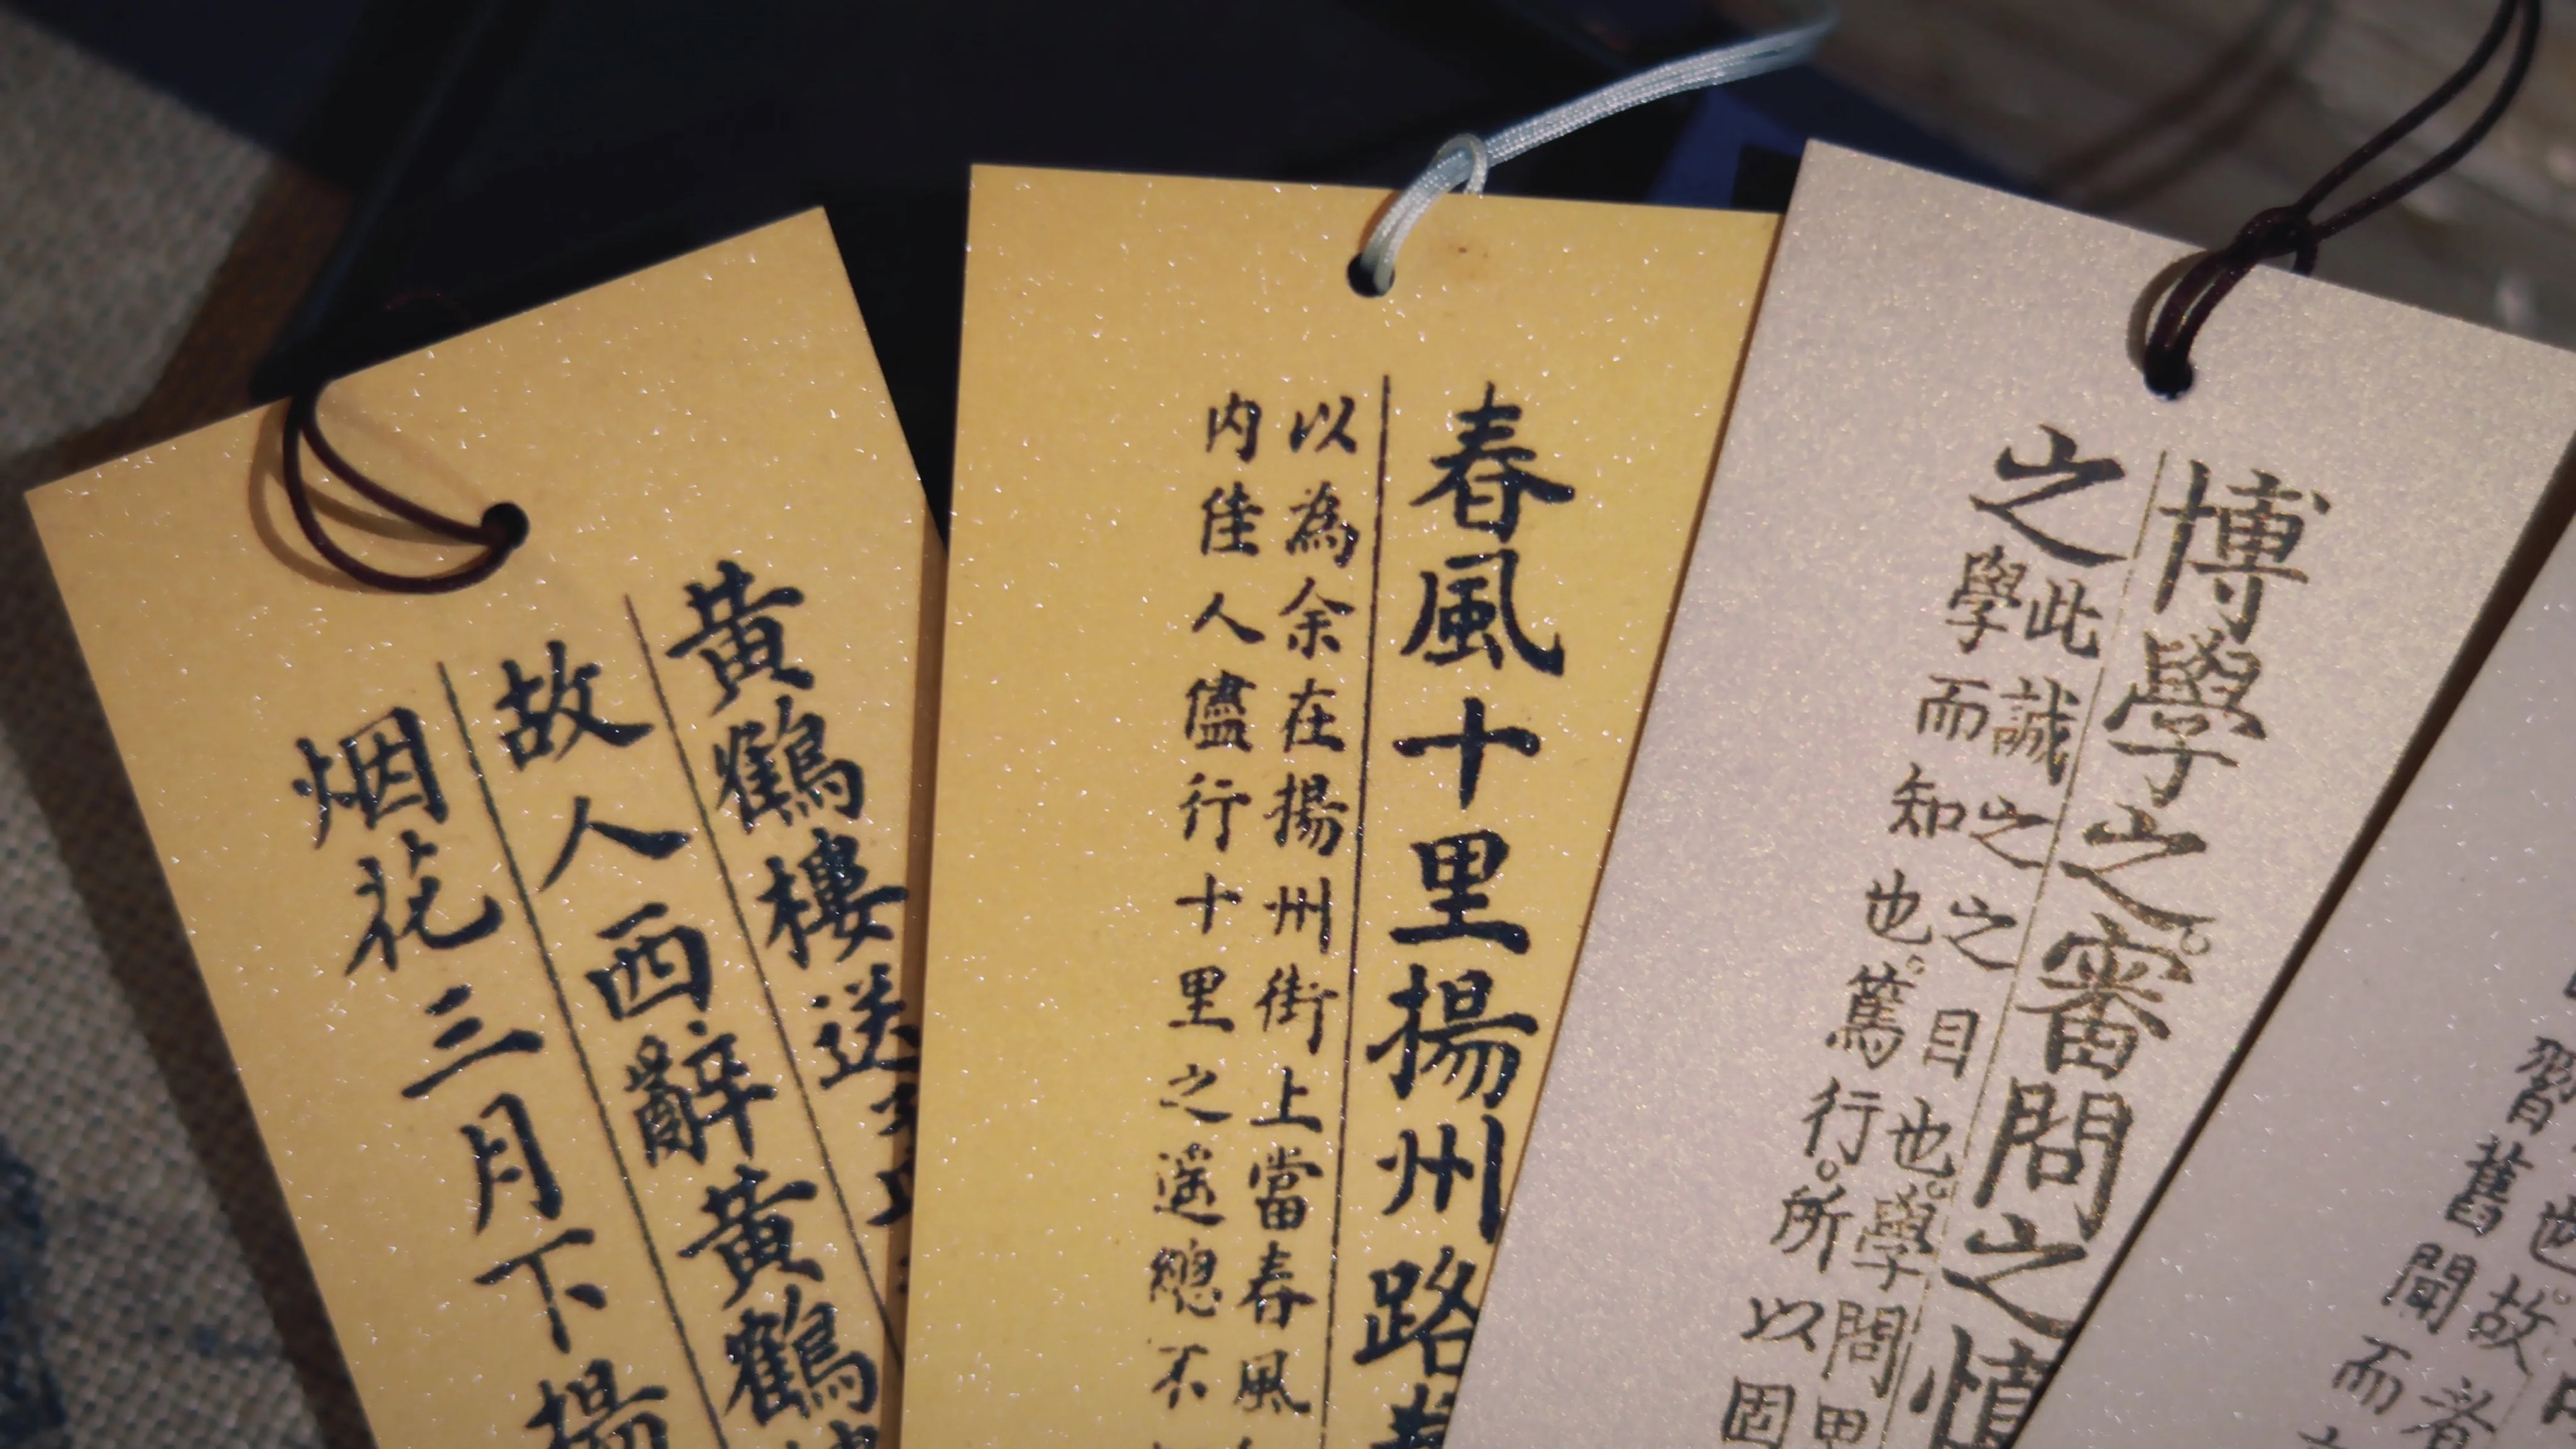 黃鶴樓送
故人西辭黃鶴
烟花三月下揚
春風十里揚州路
以為余在揚州街上當春風
内佳人儘行十里之遥總不
博學之審問之慎
之
此誠之之目也學問
學而知也篤行所以固
也故者
習舊聞而